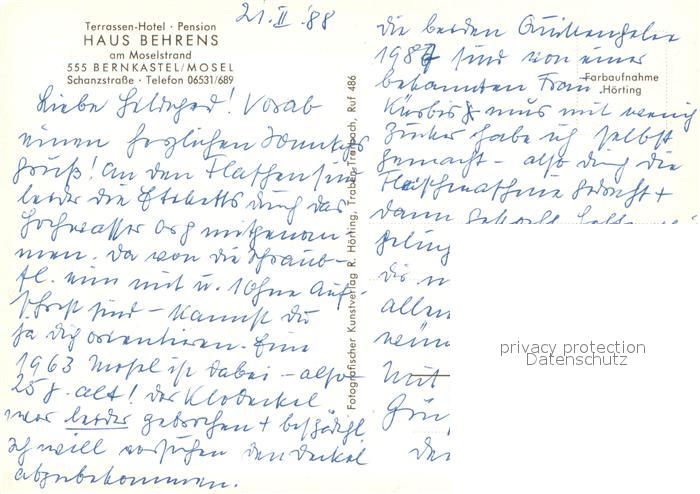 Terrassen-Hotel · Pension
HAUS BEHRENS
am Moselstrand
555 BERNKASTEL/MOSEL
Schanzstraße · Telefon 06531/689
21. II '88
Liebe Hildegard! Vorab
einen herzlichen Sonntags
gruß! An den Flaschen sind
leider die Etiketts durch das
Hochwasser arg mitgenom
men. Da von die Schraub-
fl. ein mit u. 1 ohne Auf-
schrift sind – kannst du
ja dich orientieren. Eine
1963 Mosel ist dabei – also
25 J. alt! Der Klodeckel
war leider gebrochen + beschädigt
Ich will versuchen den Deckel
abzubekommen.
Fotografischer Kunstverlag R. Hörting, Traben-Trarbach, Ruf 486
die beiden
1987 sind von einer
bekannten Frau
Farbaufnahme
Hörting
Kürbis mus mit wenig
Zucker habe ich selbst
gemacht – also durch die
Fleischmaschine gedreht +
dann gekocht
geling
allen
Mit
privacy protection
Datenschutz